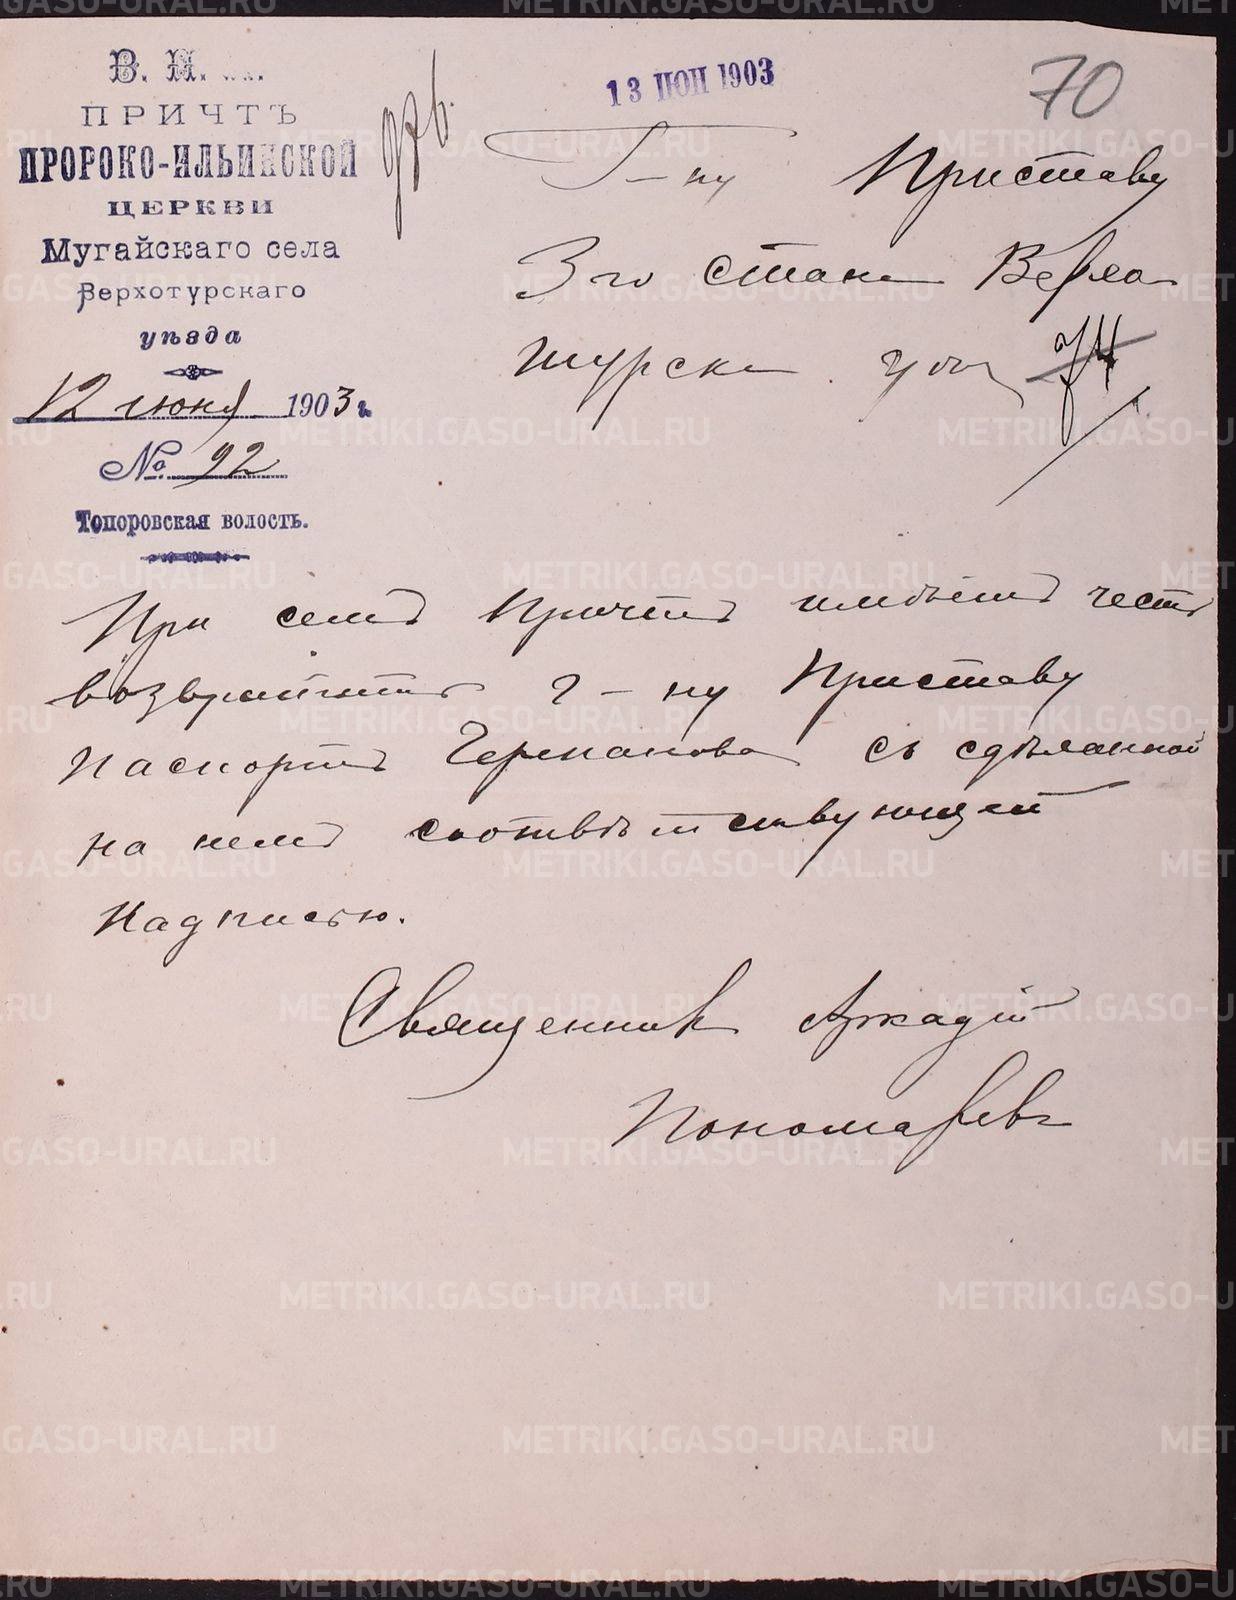 В. И.
ПРИЧТЪ
ПРОРОКО-ИЛЬИНСКОЙ
ЦЕРКВИ
Мугайскаго села
Верхотурскаго
уѣзда
12 июня 1903 г.
№ 92
Топоровская волость.
13 ІЮН 1903
70
Г-ну Приставу
3го стана Верхо
турска
При семъ Причтъ имѣетъ честь
возвратить г-ну Приставу
паспортъ Германова съ сдѣланной
на немъ соотвѣтствующей
надписью.
Священник Аркадій
Пономаревъ
METRIKI.GASO-URAL.RU